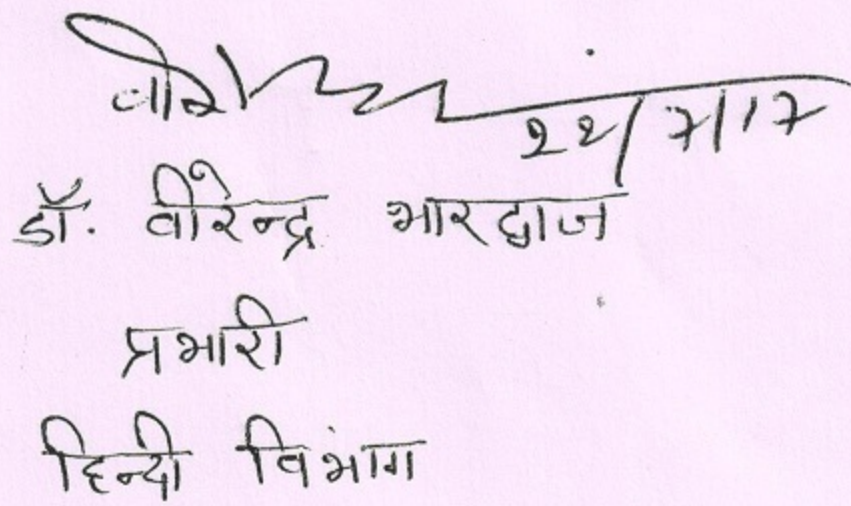 22/7/17
डॉ. वीरेन्द्र भारद्वाज
प्रभारी
हिन्दी विभाग